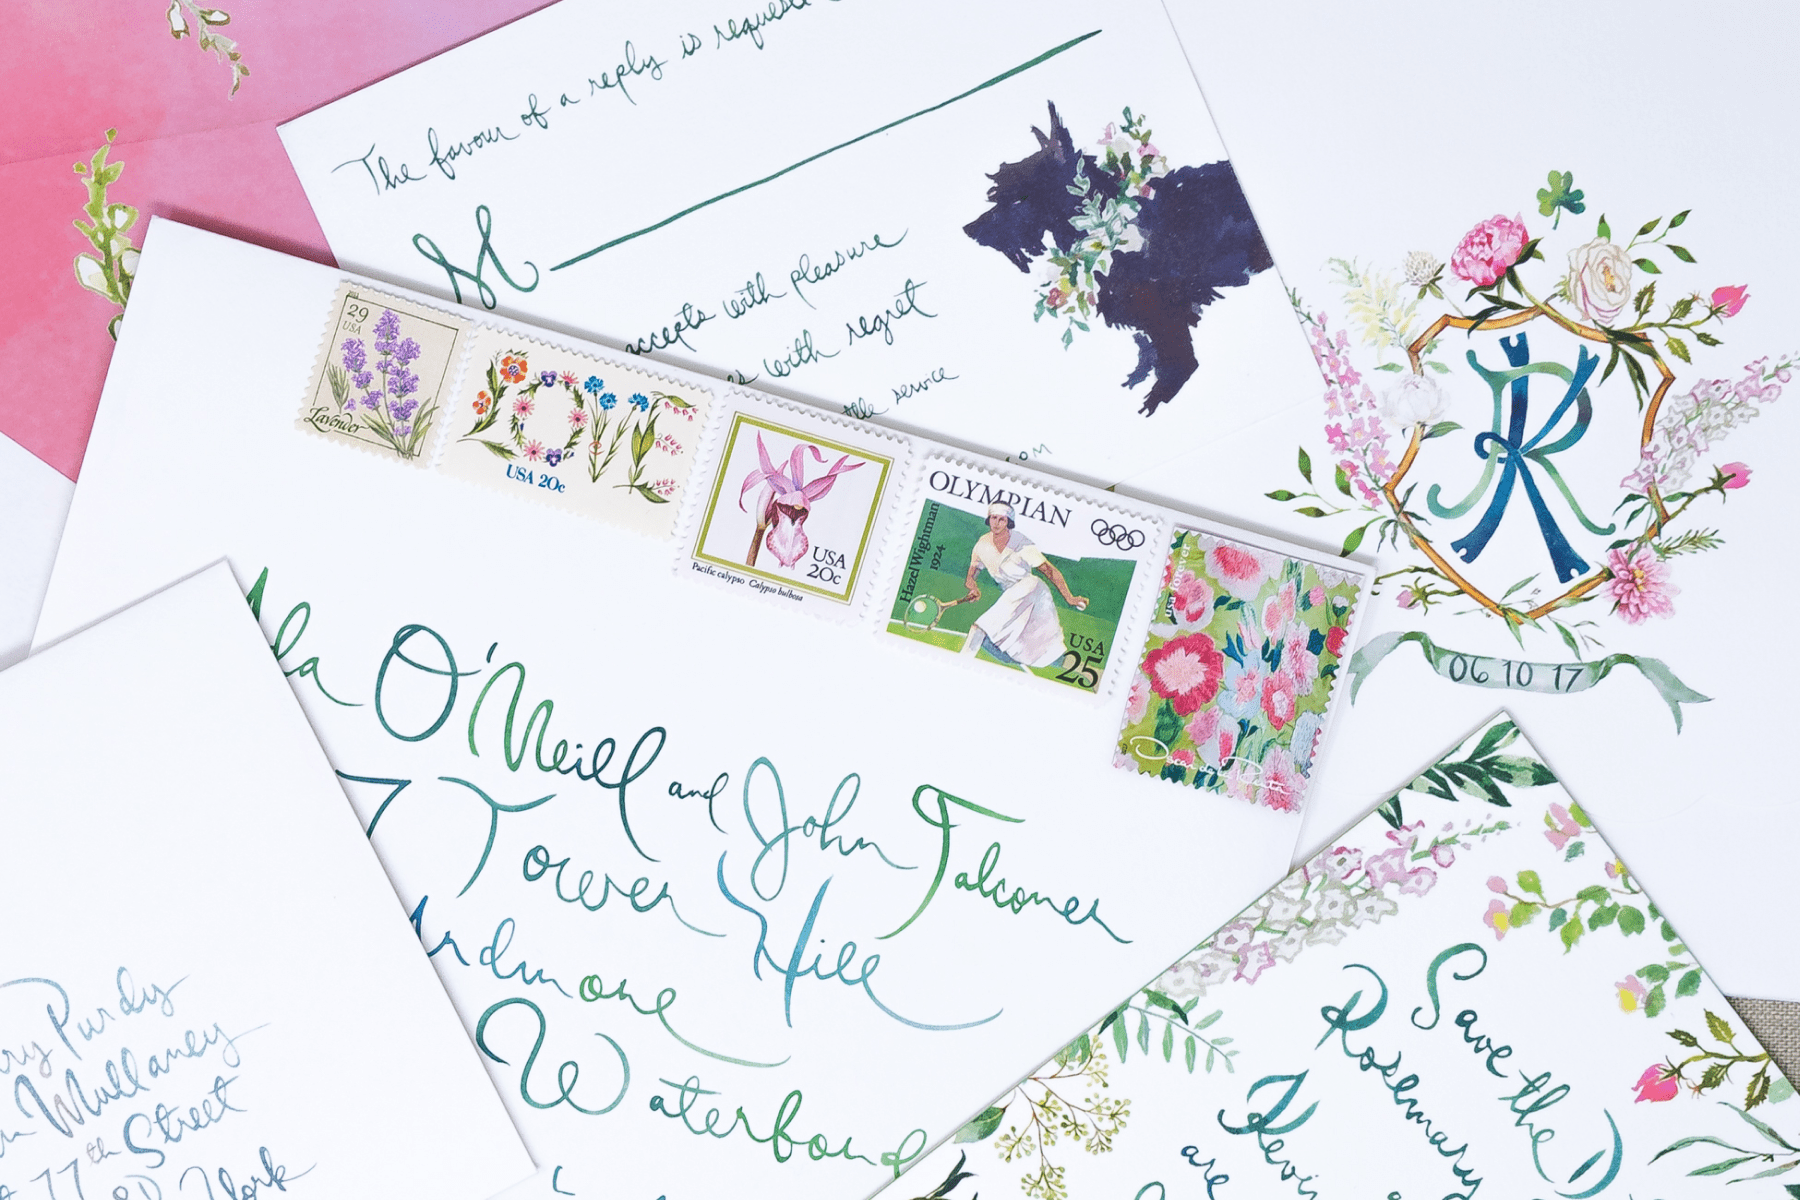 The favour of a reply is requested
M
accepts with pleasure
with regret
service
29
USA
Lavender
LOVE
USA 20c
USA
20c
Pacific calypso Calypso bulbosa
OLYMPIAN
Hazel Wightman
1924
USA
25
USA Forever
O'Neill and John Falconer
7 Tower Hill
Ardmore
Waterford
Purdy
Mullaney
77th Street
York
RK
06 10 17
Save the D
Rosemary
Kevin
are